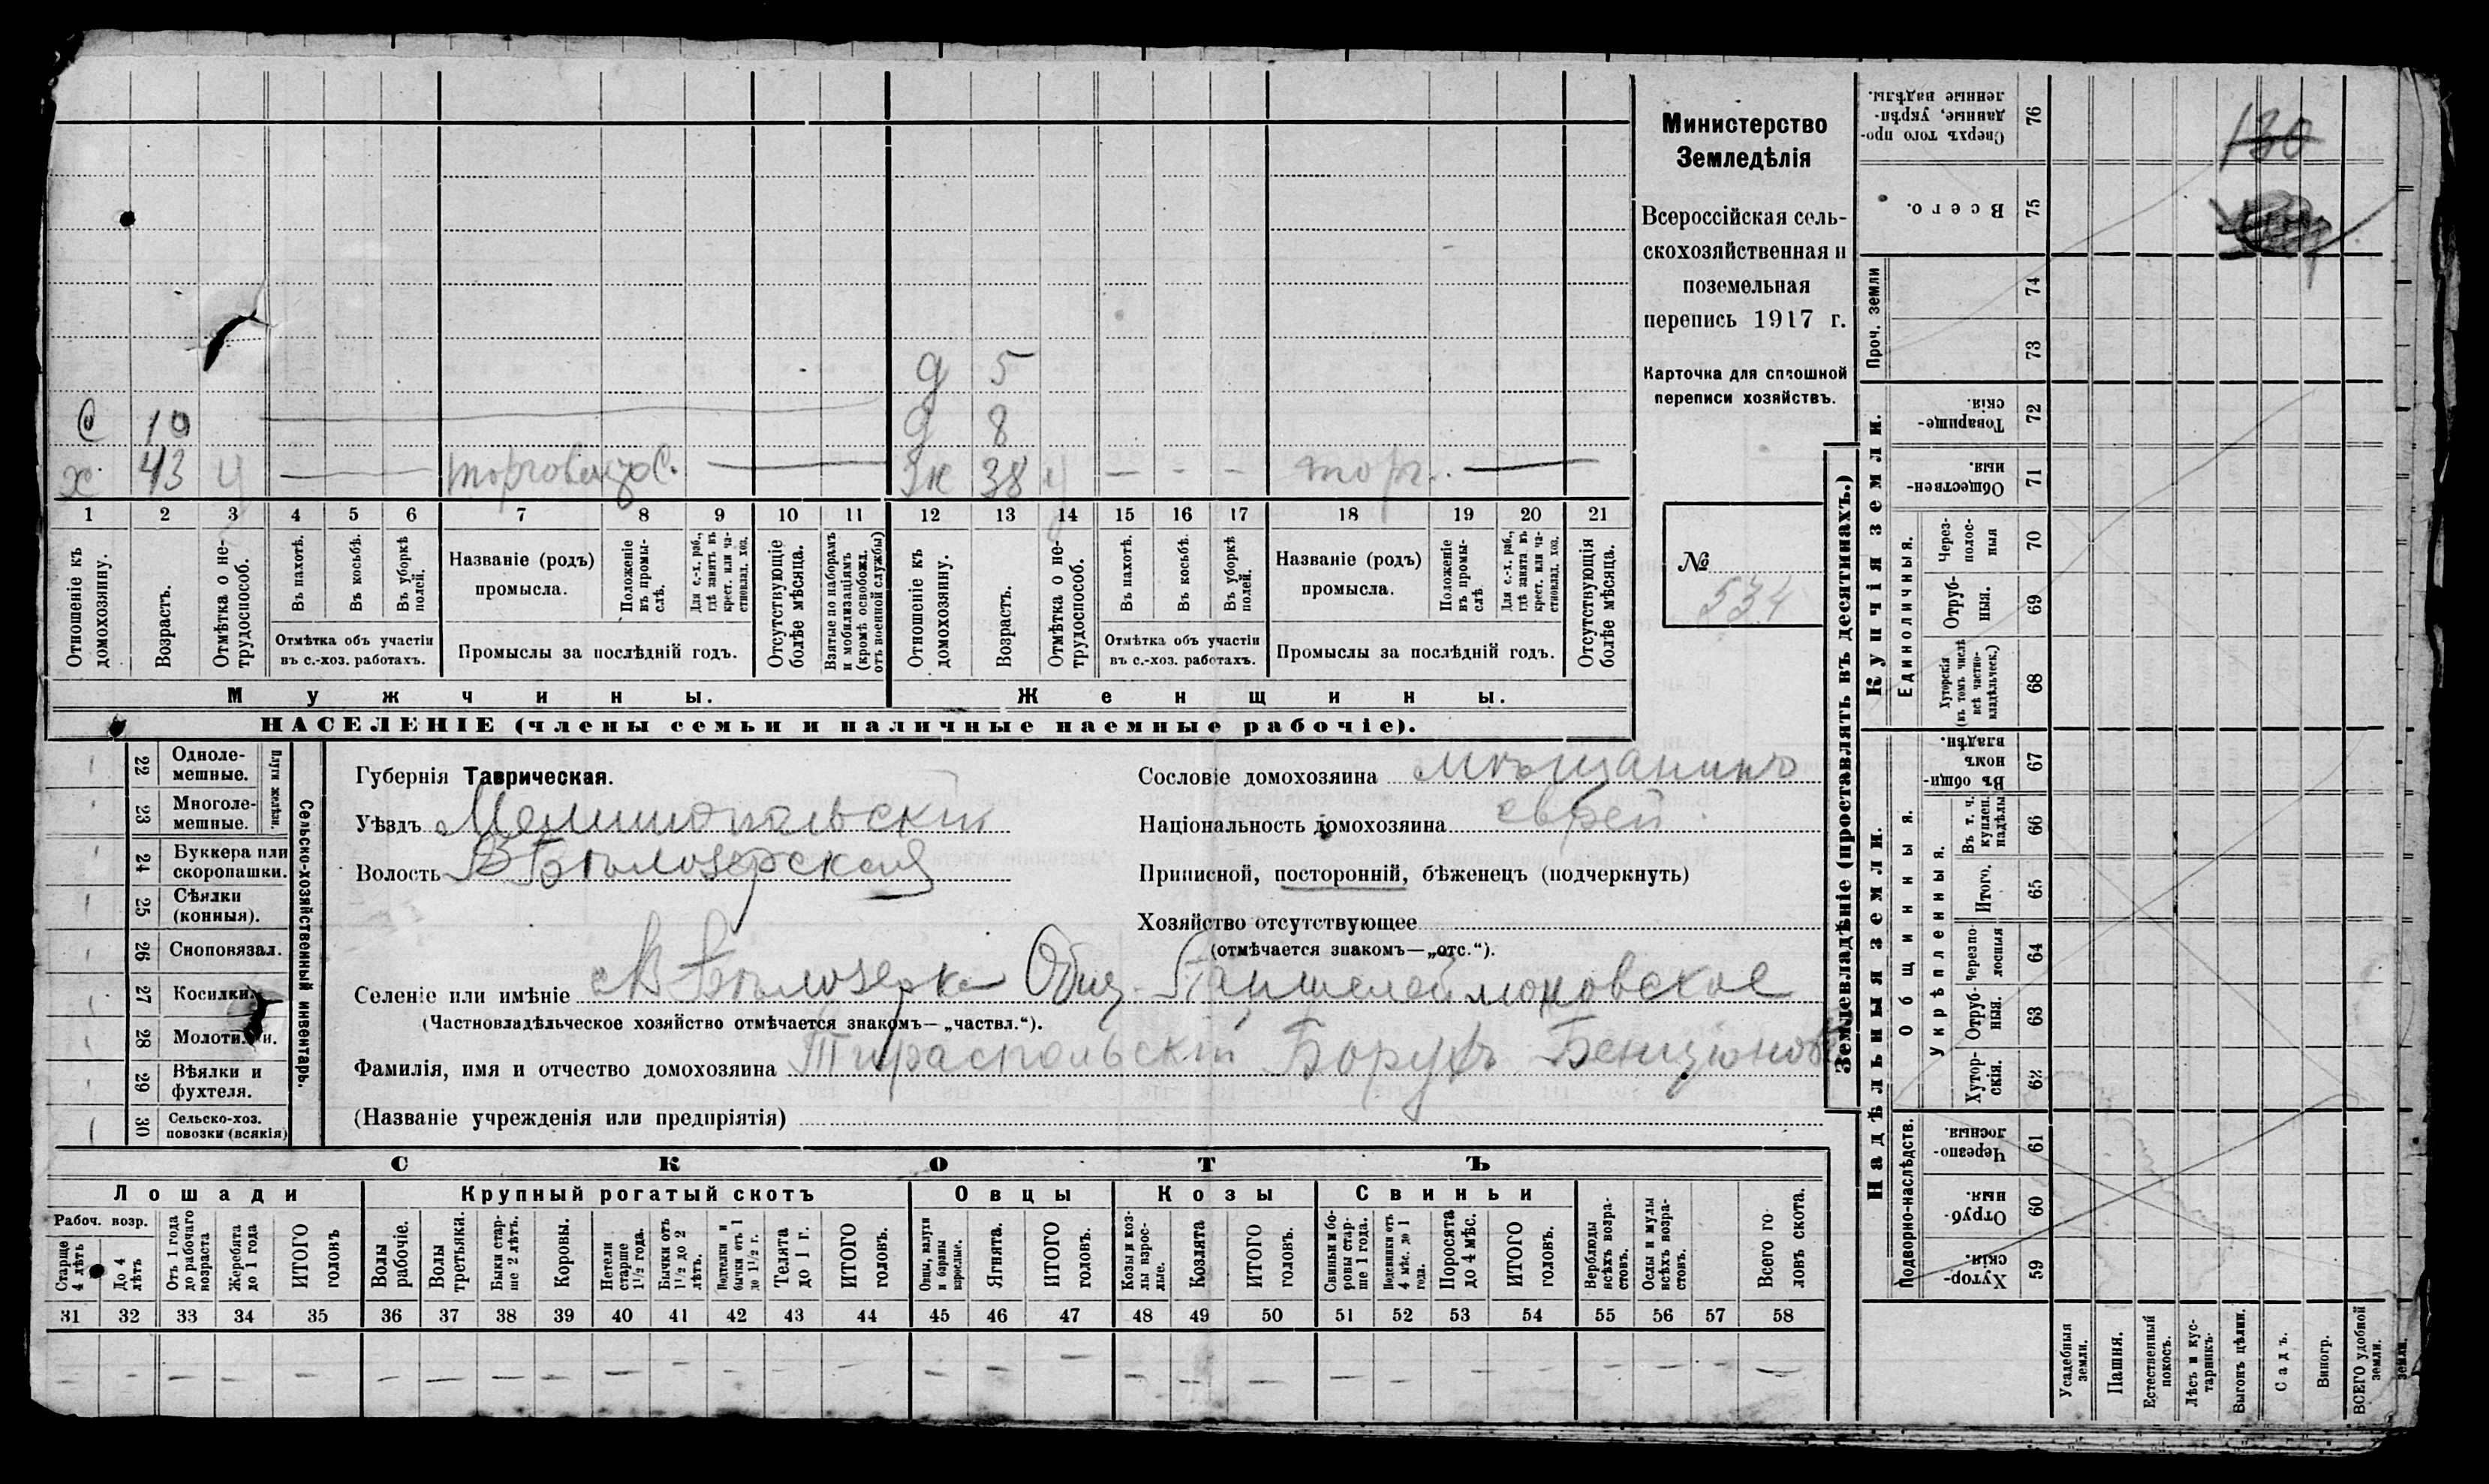 С 10 д 5
д 8
х 43 ч — торговецъ С. — Жк 38 ч - - - торг. —
1 2 3 4 5 6 7 8 9 10 11 12 13 14 15 16 17 18 19 20 21
Отношеніе къ домохозяину.
Возрастъ.
Отмѣтка о нетрудоспособ.
Въ пахотѣ.
Въ косьбѣ.
Въ уборкѣ полей.
Отмѣтка объ участіи въ с.-хоз. работахъ.
Названіе (родъ) промысла.
Положеніе въ промыслѣ.
Для с.-х. раб., гдѣ занятъ въ крест. или частновлад. хоз.
Промыслы за послѣдній годъ.
Отсутствующіе болѣе мѣсяца.
Взятые по наборамъ и мобилизаціямъ (кромѣ освобожд. отъ военной службы)
Отношеніе къ домохозяину.
Возрастъ.
Отмѣтка о нетрудоспособ.
Въ пахотѣ.
Въ косьбѣ.
Въ уборкѣ полей.
Отмѣтка объ участіи въ с.-хоз. работахъ.
Названіе (родъ) промысла.
Положеніе въ промыслѣ.
Для с.-х. раб., гдѣ занята въ крест. или частновлад. хоз.
Промыслы за послѣдній годъ.
Отсутствующія болѣе мѣсяца.
Мужчины. Женщины.
НАСЕЛЕНІЕ (члены семьи и наличные наемные рабочіе).
Министерство
Земледѣлія
Всероссійская сель-
скохозяйственная и
поземельная
перепись 1917 г.
Карточка для сплошной
переписи хозяйствъ.
№
534
22 Одноле-мешные.
23 Многоле-мешные.
Плуги желѣзн.
24 Буккера или скоропашки.
25 Сѣялки (конныя).
26 Сноповязал.
27 Косилки.
28 Молотилки.
29 Вѣялки и фухтеля.
30 Сельско-хоз. повозки (всякія)
Сельско-хозяйственный инвентарь.
Губернія Таврическая.
Уѣздъ Мелитопольскій
Волость В Бѣлозерская
Сословіе домохозяина мѣщанинъ
Національность домохозяина еврей
Приписной, посторонній, бѣженецъ (подчеркнуть)
Хозяйство отсутствующее
(отмѣчается знакомъ—„отс.“).
Селеніе или имѣніе В Бѣлозерка Общ. Пантелеймоновское
(Частновладѣльческое хозяйство отмѣчается знакомъ—„частвл.“).
Фамилія, имя и отчество домохозяина Тираспольскій Борухъ Бенціонов
(Названіе учрежденія или предпріятія)
СКОТЪ
Лошади Крупный рогатый скотъ Овцы Козы Свиньи
Рабоч. возр.
Старше 4 лѣтъ
До 4 лѣтъ
Отъ 1 года до рабочаго возраста
Жеребята до 1 года
ИТОГО головъ
Волы рабочіе.
Волы третьяки.
Быки старше 2 лѣтъ.
Коровы.
Нетели старше 1½ года.
Бычки отъ 1½ до 2 лѣтъ.
Подтелки и бычки отъ 1 до 1½ г.
Телята до 1 г.
ИТОГО головъ.
Овцы, валухи и бараны взрослые.
Ягнята.
ИТОГО головъ.
Козы и козлы взрослые.
Козлята
ИТОГО головъ.
Свиньи и боровы старше 1 года.
Подсвинки отъ 4 мѣс. до 1 года.
Поросята до 4 мѣс.
ИТОГО головъ.
Верблюды всѣхъ возрастовъ.
Ослы и мулы всѣхъ возрастовъ.
Всего головъ скота.
31 32 33 34 35 36 37 38 39 40 41 42 43 44 45 46 47 48 49 50 51 52 53 54 55 56 57 58
Землевладѣніе (проставлять въ десятинахъ.)
Сверхъ того проданные, укрѣпленные надѣлы. 76
130
Всего. 75
Проч. земли 74
73
Купчія земли.
Товарищескія. 72
Общественныя. 71
Единоличныя.
Черезполосныя 70
Отрубныя. 69
Хуторскія (въ томъ числѣ всѣ частновладѣльческ.) 68
Надѣльныя земли.
Общинныя.
Въ общинномъ владѣн. 67
Укрѣпленныя.
Въ т. ч. куплен. надѣлы 66
Итого. 65
Черезполосныя 64
Отрубныя. 63
Хуторскія. 62
Подворно-наслѣдств.
Черезполосныя. 61
Отрубныя. 60
Хуторскія. 59
Усадебныя земли.
Пашня.
Естественный покосъ.
Лѣсъ и кустарникъ.
Выгонъ цѣлин.
Садъ.
Виногр.
ВСЕГО удобной земли.
земли.